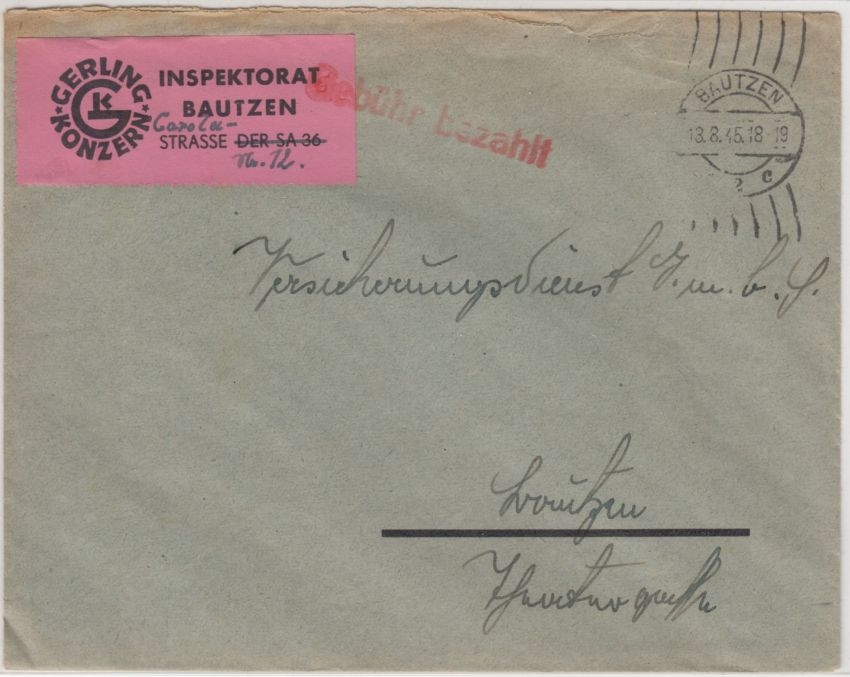 GERLING KONZERN
INSPEKTORAT
BAUTZEN
Carola-
STRASSE DER SA 36
Nr. 12.
Gebühr bezahlt
BAUTZEN
13.8.45.18-19
2 c
Versicherungsdienst G.m.b.H.
Bautzen
Theatergasse